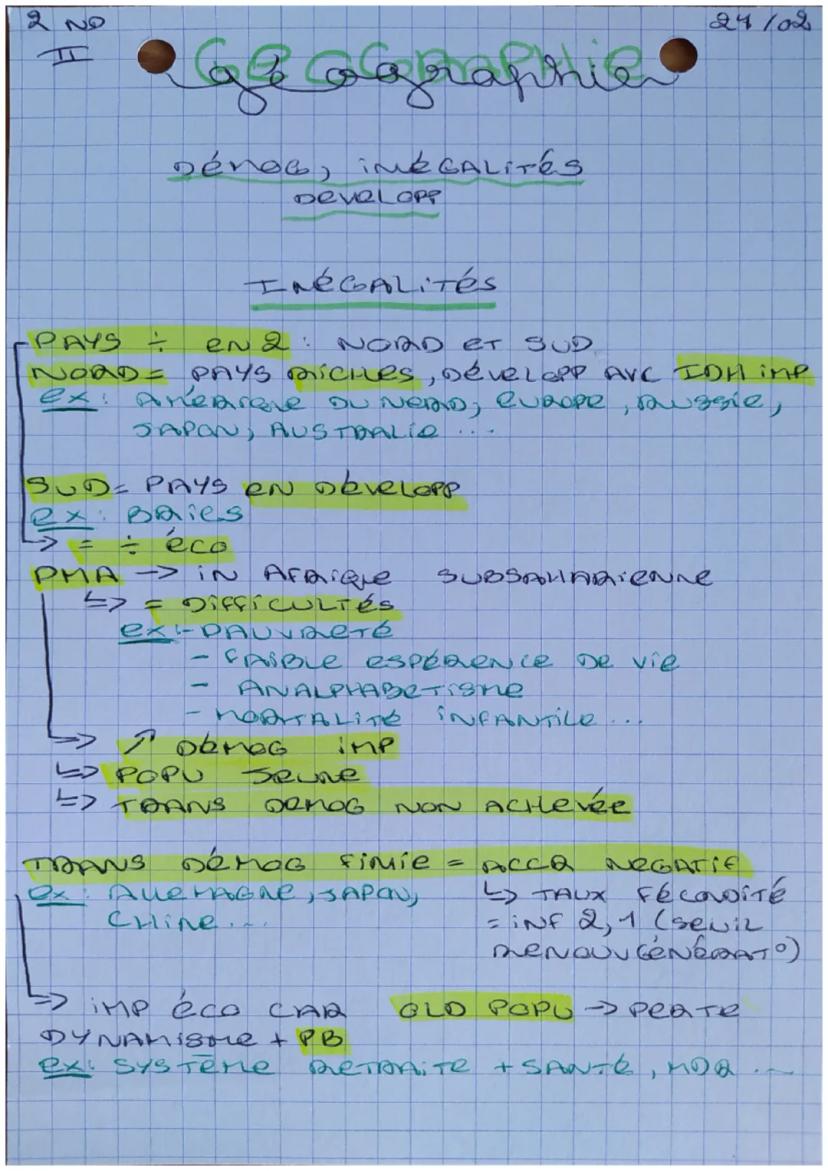 2ND
24/02
II
GEOGRAPHIE
géographie
DÉMOG, INÉGALITÉS
DEVELOPP
INÉGALITÉS
PAYS ÷ EN 2 : NORD ET SUD
NORD = PAYS RICHES, DÉVELOPP AVC IDH IMP
ex : AMÉRIQUE DU NORD, EUROPE, RUSSIE,
JAPON, AUSTRALIE ...
SUD = PAYS EN DÉVELOPP
ex : BRICS
=> = ÷ ÉCO
PMA -> IN AFRIQUE SUBSAHARIENNE
↳> = DIFFICULTÉS
ex : - PAUVRETÉ
- FAIBLE ESPÉRENCE DE VIE
- ANALPHABETISME
- MORTALITÉ INFANTILE ...
=> ↗ DÉMOG IMP
↳> POPU JEUNE
↳> TRANS DEMOG NON ACHEVÉE
TRANS DÉMOG FINIE = ACCR NEGATIF
ex : ALLEMAGNE, JAPON, ↳> TAUX FÉCONDITÉ
CHINE ... = INF 2,1 (SEUIL
RENOUV GÉNÉRAT°)
=> IMP ÉCO CAR OLD POPU -> PERTE
DYNAMISME + PB
ex : SYSTÈME RETRAITE + SANTÉ, MDR ...